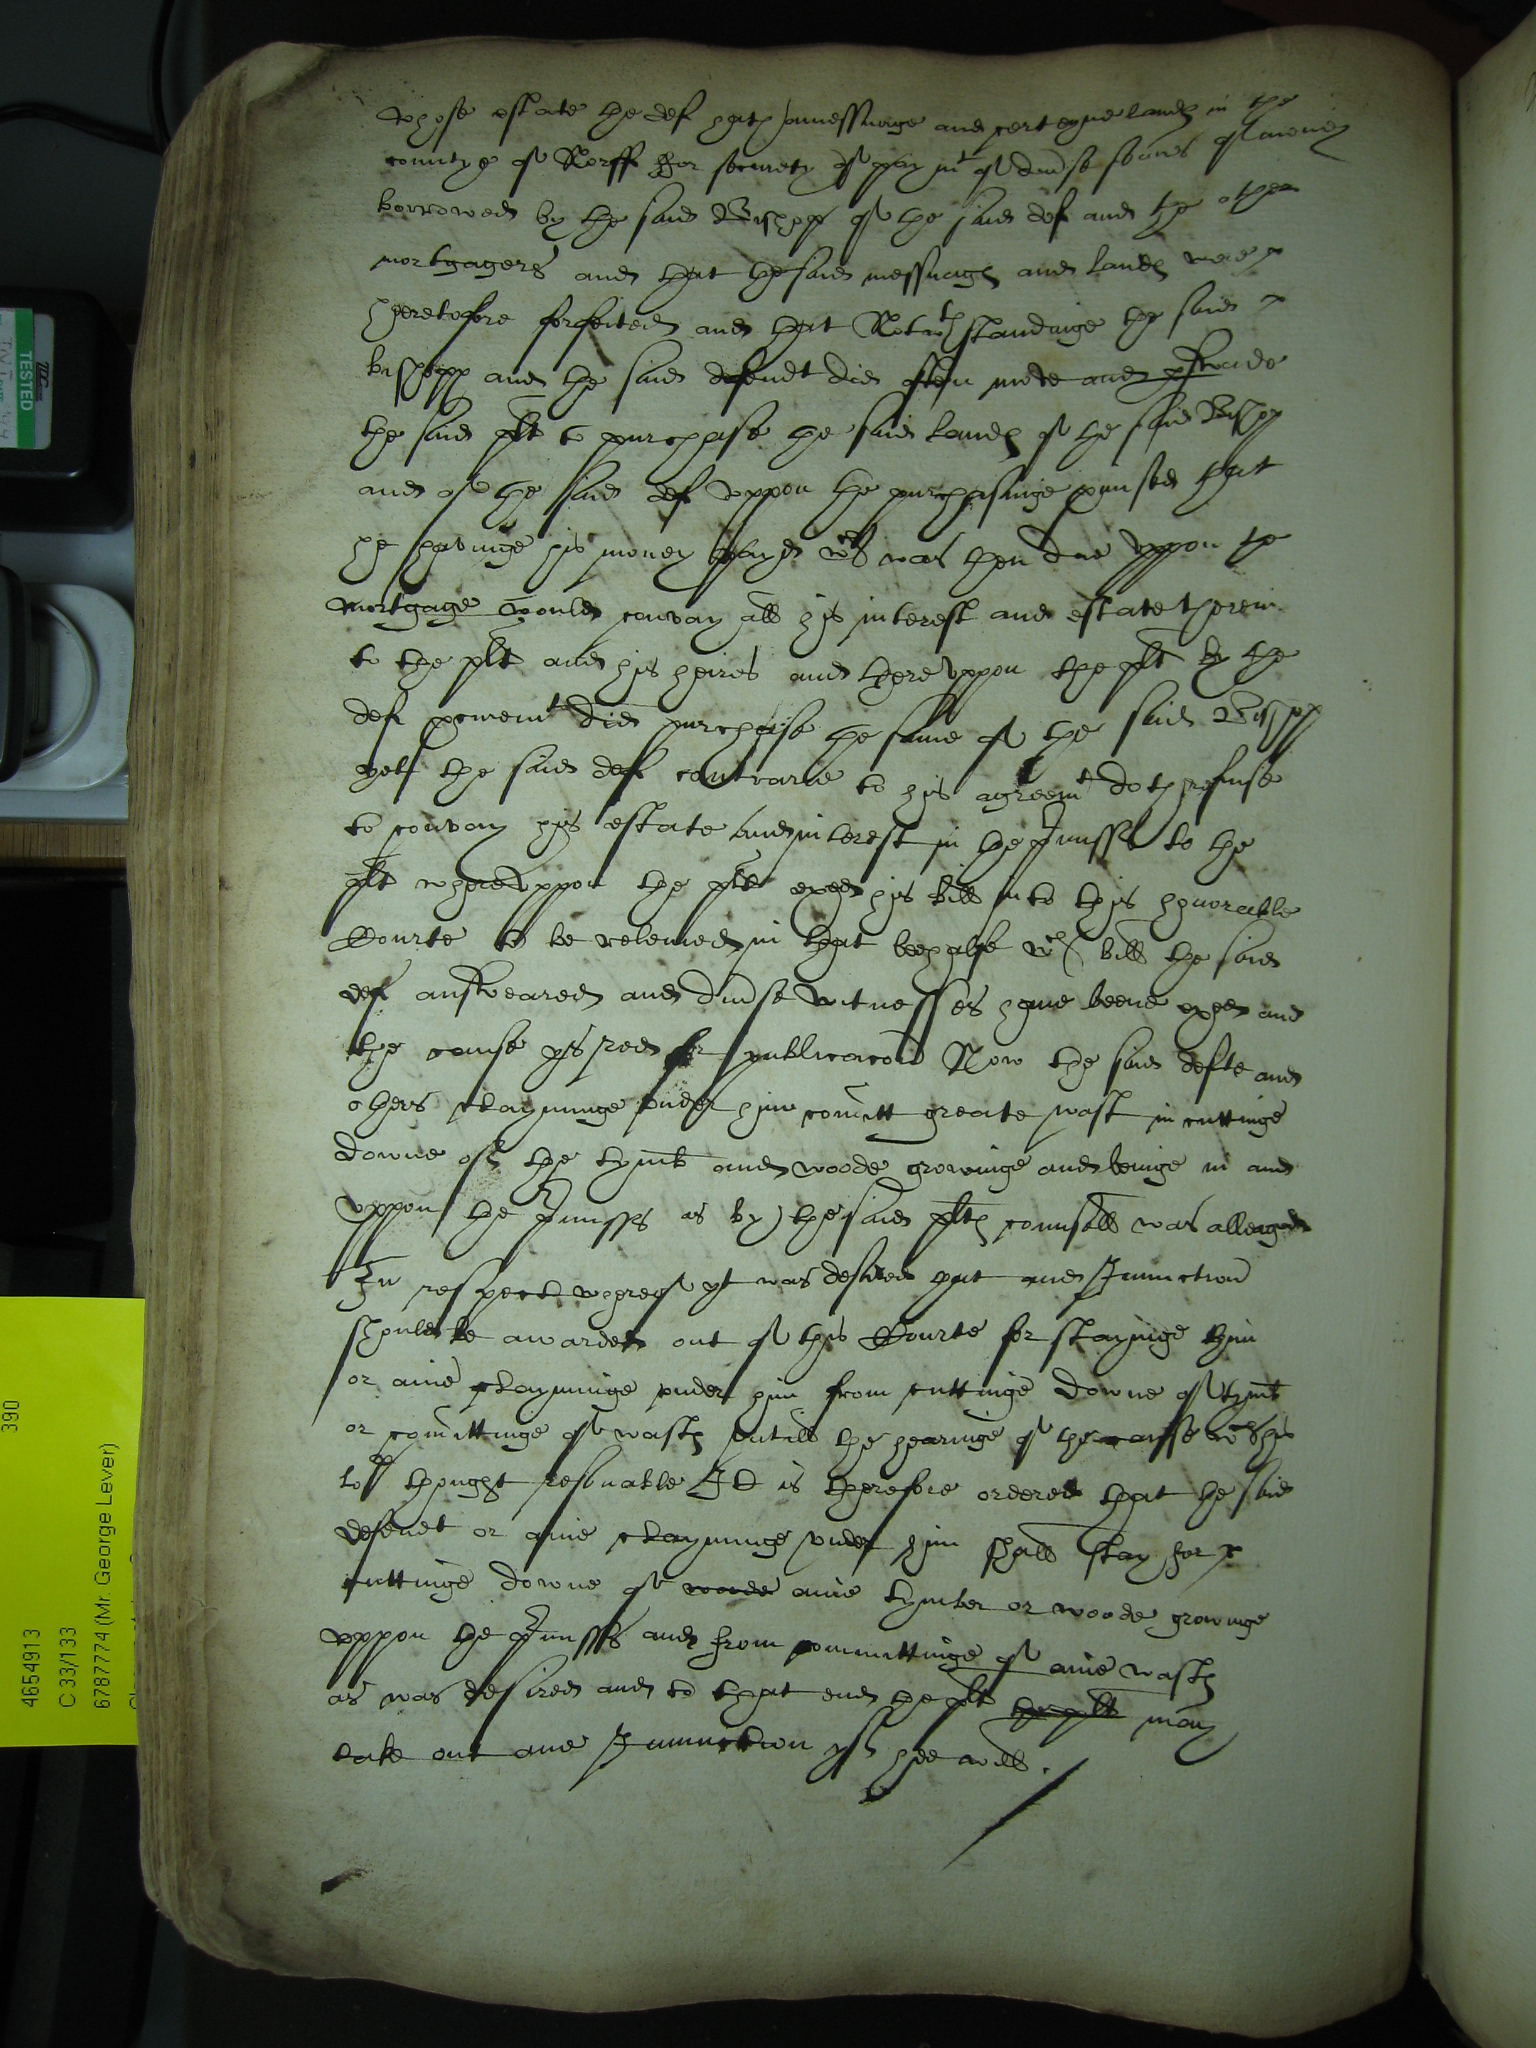 whose estate the def hath a messuage and certeyne landℯ in the
countye of Norff for security of paymt of divse somes of money
borrowed by the said Bishopp of the said def and the other
mortgagers and that the said messuagℯ and landℯ were
heretofore forfeited and that Notwthstandinge the said
bishopp and the said defendt did often move and pswade
the said plt to purchase the said landℯ of the said Bishopp
and of the said def uppon the purchasinge pmised that
he havinge his money payd wch was then due uppon the
mortgage would convay all his interest and estate therein
to the plt and his heires and thereuppon the plt by the
def pcuremt did purchase the same of the said Bishopp
yett the said def contrarie to his agreemt doth refuse
to convay his estate and interest in the pmisses to the
plt whereuppon the plt exhited his bill into this honorable
Courte to be releived in that beehalfe wch bill the said
def answeared and divse witnesses have beene exed and
the cause ys for publicacon Now the said defte and
others clayminge under him comitt greate wast in cuttinge
downe of the tymb and woode growinge and beinge in and
uppon the pmisses as by the said pltℯ counsell was alleaged
In respect whereof yt was desired that and Iniunction
should be awarded out of this Courte for stayinge him
or anie clayminge under him from cuttinge downe of tymb
or comittinge of wast untill the hearinge of the cause wch this
Co thought resonable It is therefore ordered that the said
defendt or anie clayminge under him shall stay for
cuttinge downe of woode anie tymber or woode growinge
uppon the pmisses and from committinge of anie wast
as was desired and to that end the plt the plt may
take out ane Iniunction yf hee will.
TESTED
390
4654913
C 33/133
6787774 (Mr. George Lever)